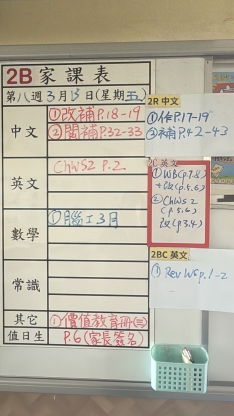 2B 家課表
第八週3月15日(星期五)
中文
①改補P.18-19
②閱補P.32-33
英文
ChWS2 P.2
數學
①腦工3月
常識
其它
①價值教育冊(三)
值日生
P.6(家長簽名)
2R 中文
①作P.17-19
②補P.42-43
英文
①WB(p.7,8)
(p.5,6)
②ChWS 2
(p.5,6)
(p.3,4)
2BC 英文
①Rev WS p.1-2